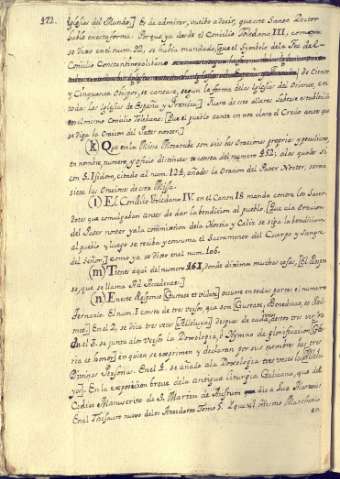 172. Iglesias del Mundo.] Es de admirar, vuelvo a decir, que este Santo Doctor
hable en esta forma. Porque ya desde el Concilio Toledano III, como
se dixo en el num. 22, se había mandado, [que el Symbolo de la Fe del
Concilio Constantinopolitano
de Ciento
y Cinquenta Obispos, se cante, segun la forma de las Iglesias del Oriente, en
todas las Iglesias de España y Francia.] Fuera de esto
en el mismo Concilio Toledano: [Que el pueblo cante en voz clara el Credo antes que
se diga la Oracion del Pater noster.]
(k) Que en la Misa Mozarabe son seis las Oraciones proprias y
en nombre, numero y oficio distintas, se consta del numero 252; a las quales si
con S. Isidoro, citado al num. 128, añades la Oracion del Pater Noster, seran
siete las Oraciones de esta Missa.
(l) El Concilio Toledano IV. en el Canon 18 manda contra los Sacer-
dotes que comulgaban antes de dar la bendicion al pueblo. [Que a la Oracion
del Pater noster y a la conmixtion de la Hostia y Caliz se siga la bendicion
al pueblo, y luego se reciba y consuma el Sacramento del Cuerpo y Sangre
del Señor.] como ya se dixo en el num. 106.
(m) Tiene aqui del numero 261, donde diximos muchas cosas, [el Respon-
so, que se llama Ad Accedentes.]
(n) En este Responso [Gustate et videte] ocurre en todas partes el numero
Ternario. El num. 1 consta de tres versos, que son [Gustate, Benedicam, et Redi-
met.] En el 2. se dice tres veces [Alleluya] despues de cada uno de los tres versos.
En el 3. se junta al verso la Doxologia, ó Hymno de glorificacion, [Glo-
ria et honor] en quien se exprimen y declaran por sus nombres las tres
Divinas Personas. En el 4. se añade a la Doxologia tres veces [Allelu-
ya]. En la exposicion breve de la antigua Liturgia Galicana, que del
Codice Manuscrito de S. Martin de dio a luz Martene
En el Thesauro nuevo de los Anecdotos Tomo 5. el mismo
en